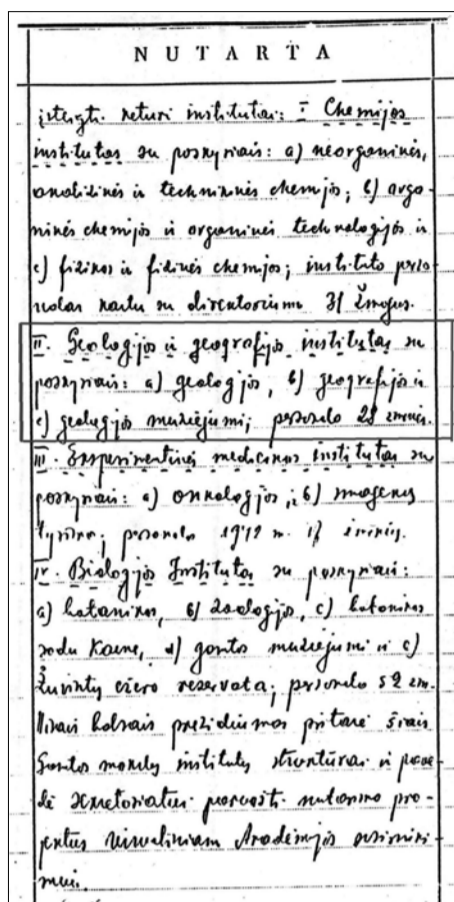 NUTARTA
įsteigti keturi institutai: I Chemijos
institutas su poskyriais: a) neorganinės,
analizinės ir techninės chemijos; b) orga-
ninės chemijos ir organinės technologijos ir
c) fizikos ir fizinės chemijos; instituto perso-
nalas kartu su direktorium 31 žmogus.
II. Geologijos ir geografijos institutas su
poskyriais: a) geologijos, b) geografijos ir
c) geologijos muziejumi; personalo 28 žmonės.
III. Eksperimentinės medicinos institutas su
poskyriais: a) onkologijos, b) smegenų
tyrimo; personalo m. 17
IV. Biologijos Institutas su poskyriais:
a) botanikos, b) zoologijos, c) botanikos
sodu Kaune, d) gamtos muziejumi ir e)
Žuvinto ežero rezervatu; personalo 52 žm.
Visais balsais prezidiumas pritarė šiai
Gamtos mokslų institutų struktūrai ir pave-
dė sekretoriatui paruošti nutarimo pro-
jektus Akademijos susirinki-
mui.